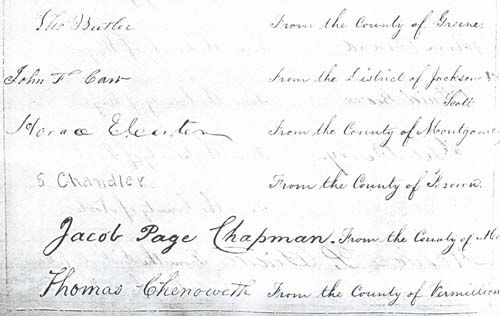 Thos Butler From the County of Greene.
John F Carr From the District of Jackson &
Scott
Horace E. Carter From the County of Montgom
S Chandler From the County of Brown.
Jacob Page Chapman. From the County of Ma
Thomas Chenoweth From the County of Vermillion